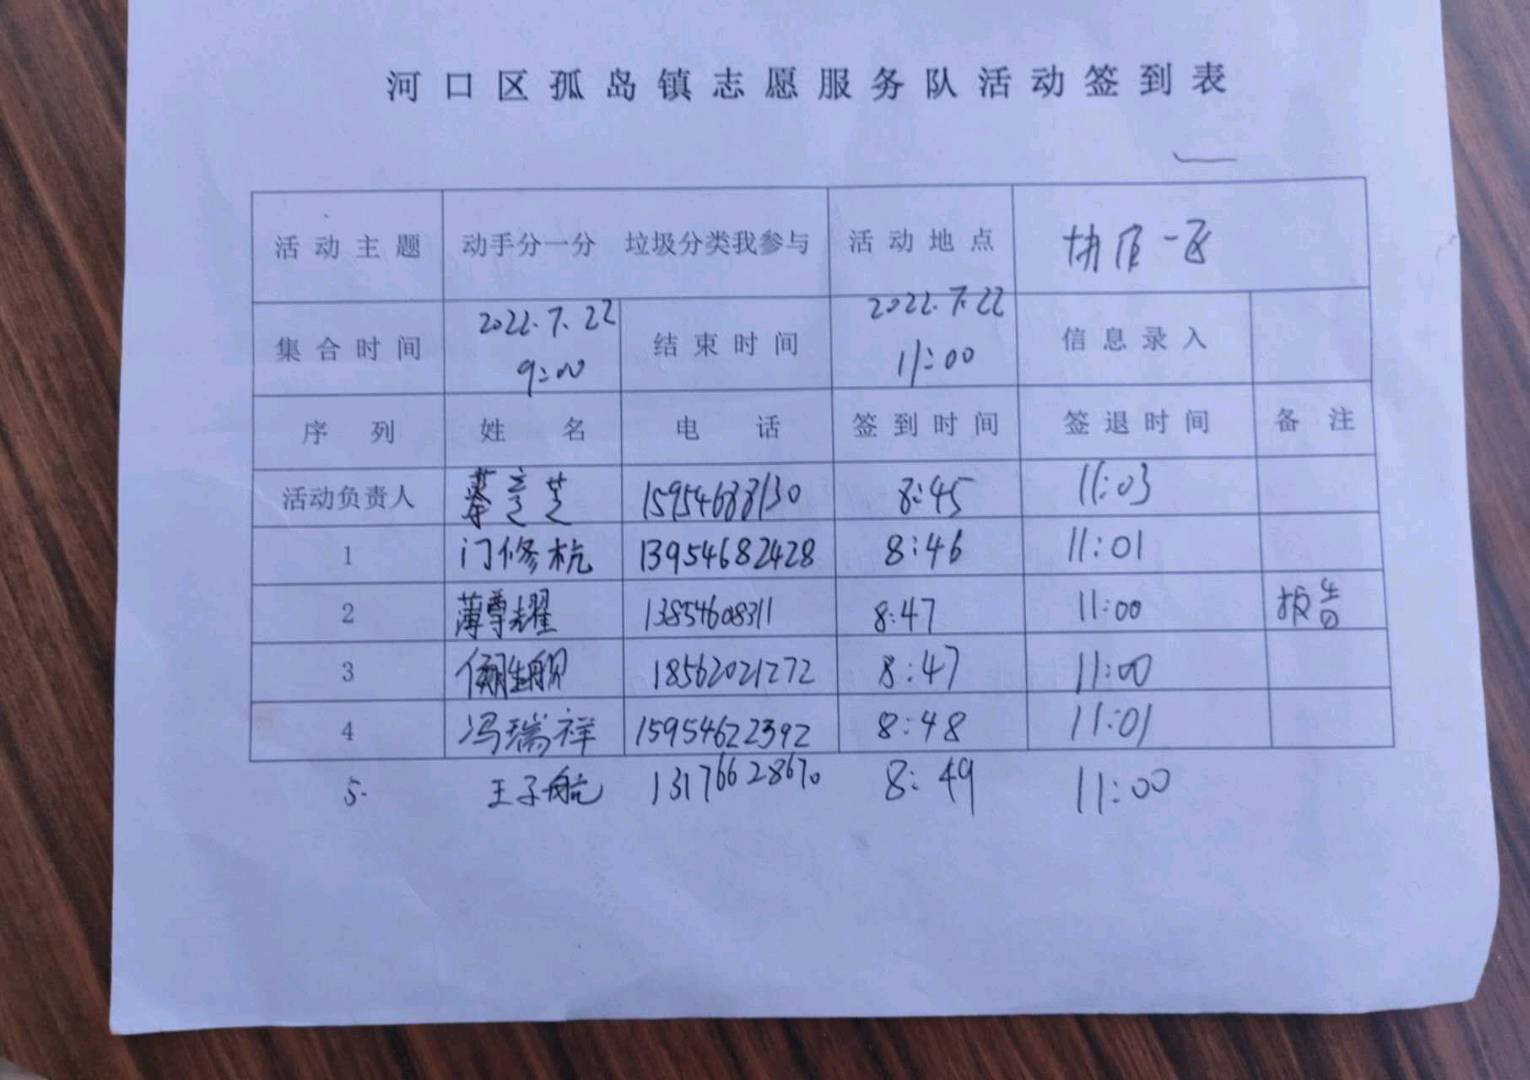 河口区孤岛镇志愿服务队活动签到表
活动主题 动手分一分 垃圾分类我参与 活动地点 一区
集合时间 2022.7.22 9:00 结束时间 2022.7.22 11:00 信息录入
序列 姓名 电话 签到时间 签退时间 备注
活动负责人 15954688130 8:45 11:03
1 门修杭 13954682428 8:46 11:01
2 薄尊耀 13854608311 8:47 11:00
3 18562021272 8:47 11:00
4 冯瑞祥 15954622392 8:48 11:01
5. 王子航 13176628670 8:49 11:00